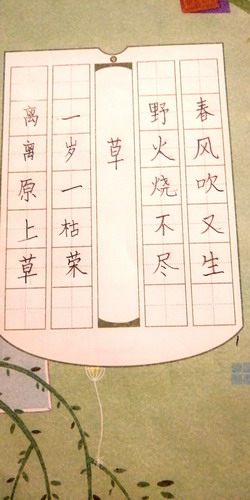 离离原上草
一岁一枯荣
草
野火烧不尽
春风吹又生